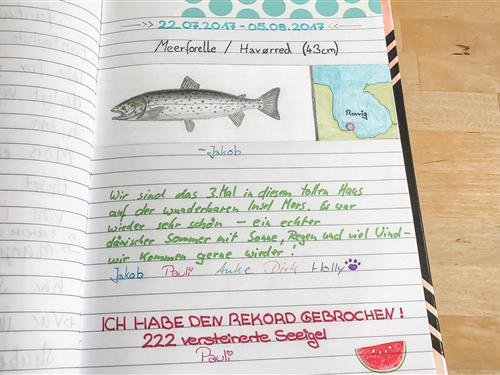 ->> 22.07.2017 - 05.08.2017 ->>
Meerforelle / Havørred (43cm)
~Jakob
Wir sind das 3. Mal in diesem tollen Haus
auf der wunderbaren Insel Mors. Es war
wieder sehr schön – ein echter
dänischer Sommer mit Sonne, Regen und viel Wind –
wir kommen gerne wieder!
Jakob Pauli Anke Dirk Holly
ICH HABE DEN REKORD GEBROCHEN!
222 versteinerte Seeigel
Pauli